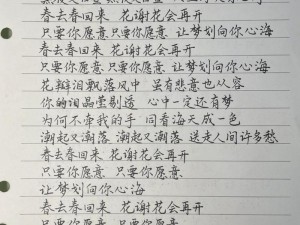 春去春回来 花谢花会再开
只要你愿意 只要你愿意 让梦划向你心海
春去春回来 花谢花会再开
只要你愿意 只要你愿意 让梦划向你心海
花瓣泪飘落风中 虽有悲意也从容
你的泪晶莹剔透 心中一定还有梦
为何不牵我的手 同看海天成一色
潮起又潮落 潮起又潮落 送走人间许多愁
春去春回来 花谢花会再开
只要你愿意 只要你愿意
让梦划向你心海
春去春回来 花谢花会再开
只要你愿意 只要你愿意